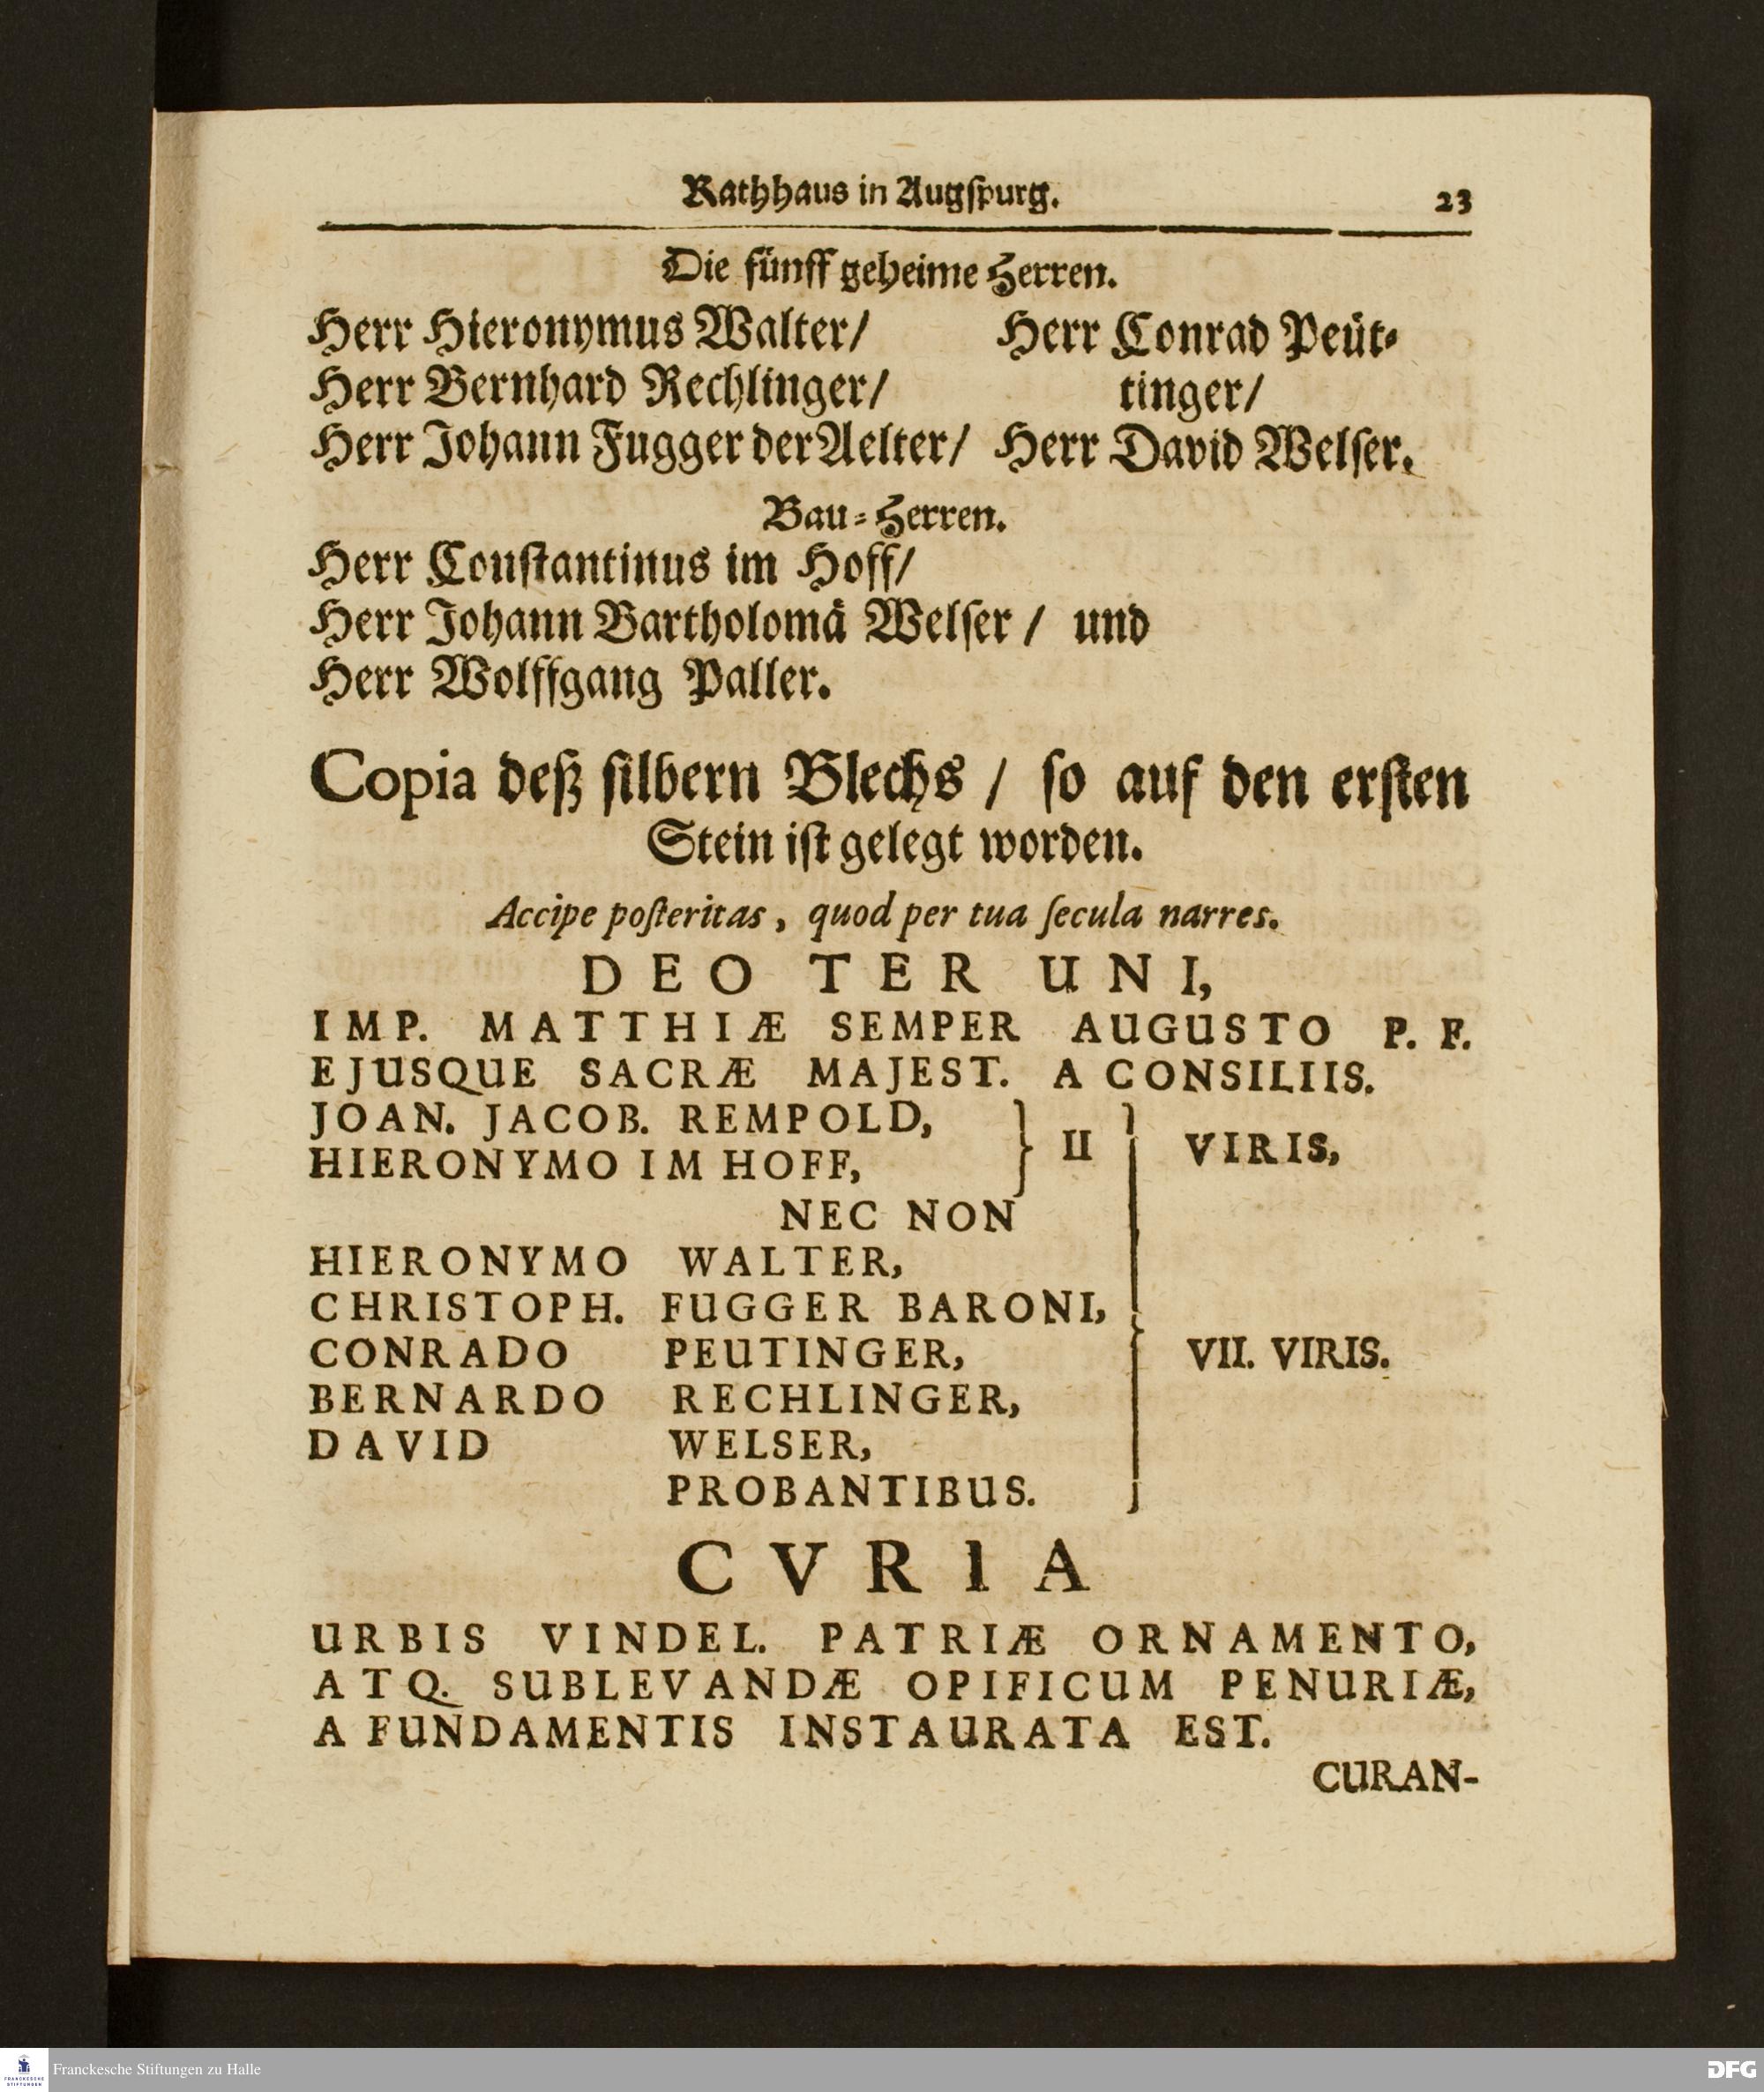 Rathhaus in Augſpurg. 23
Die fünff geheime Herren.
Herr Hieronymus Walter/ Herr Conrad Peüt-
Herr Bernhard Rechlinger/ tinger/
Herr Johann Fugger der Aelter/ Herr David Welſer.
Bau-Herren.
Herr Conſtantinus im Hoff/
Herr Johann Bartholomä Welſer / und
Herr Wolffgang Paller.
Copia deß ſilbern Blechs / ſo auf den erſten
Stein iſt gelegt worden.
Accipe poſteritas, quod per tua ſecula narres.
DEO TER UNI,
IMP. MATTHIÆ SEMPER AUGUSTO P. F.
EJUSQUE SACRÆ MAJEST. A CONSILIIS.
JOAN. JACOB. REMPOLD,
HIERONYMO IM HOFF,
} II VIRIS,
NEC NON
HIERONYMO WALTER,
CHRISTOPH. FUGGER BARONI,
CONRADO PEUTINGER, } VII. VIRIS.
BERNARDO RECHLINGER,
DAVID WELSER,
PROBANTIBUS.
CVRIA
URBIS VINDEL. PATRIÆ ORNAMENTO,
ATQ. SUBLEVANDÆ OPIFICUM PENURIÆ,
A FUNDAMENTIS INSTAURATA EST.
CURAN-
FRANCKESCHE STIFTUNGEN
Franckesche Stiftungen zu Halle
DFG